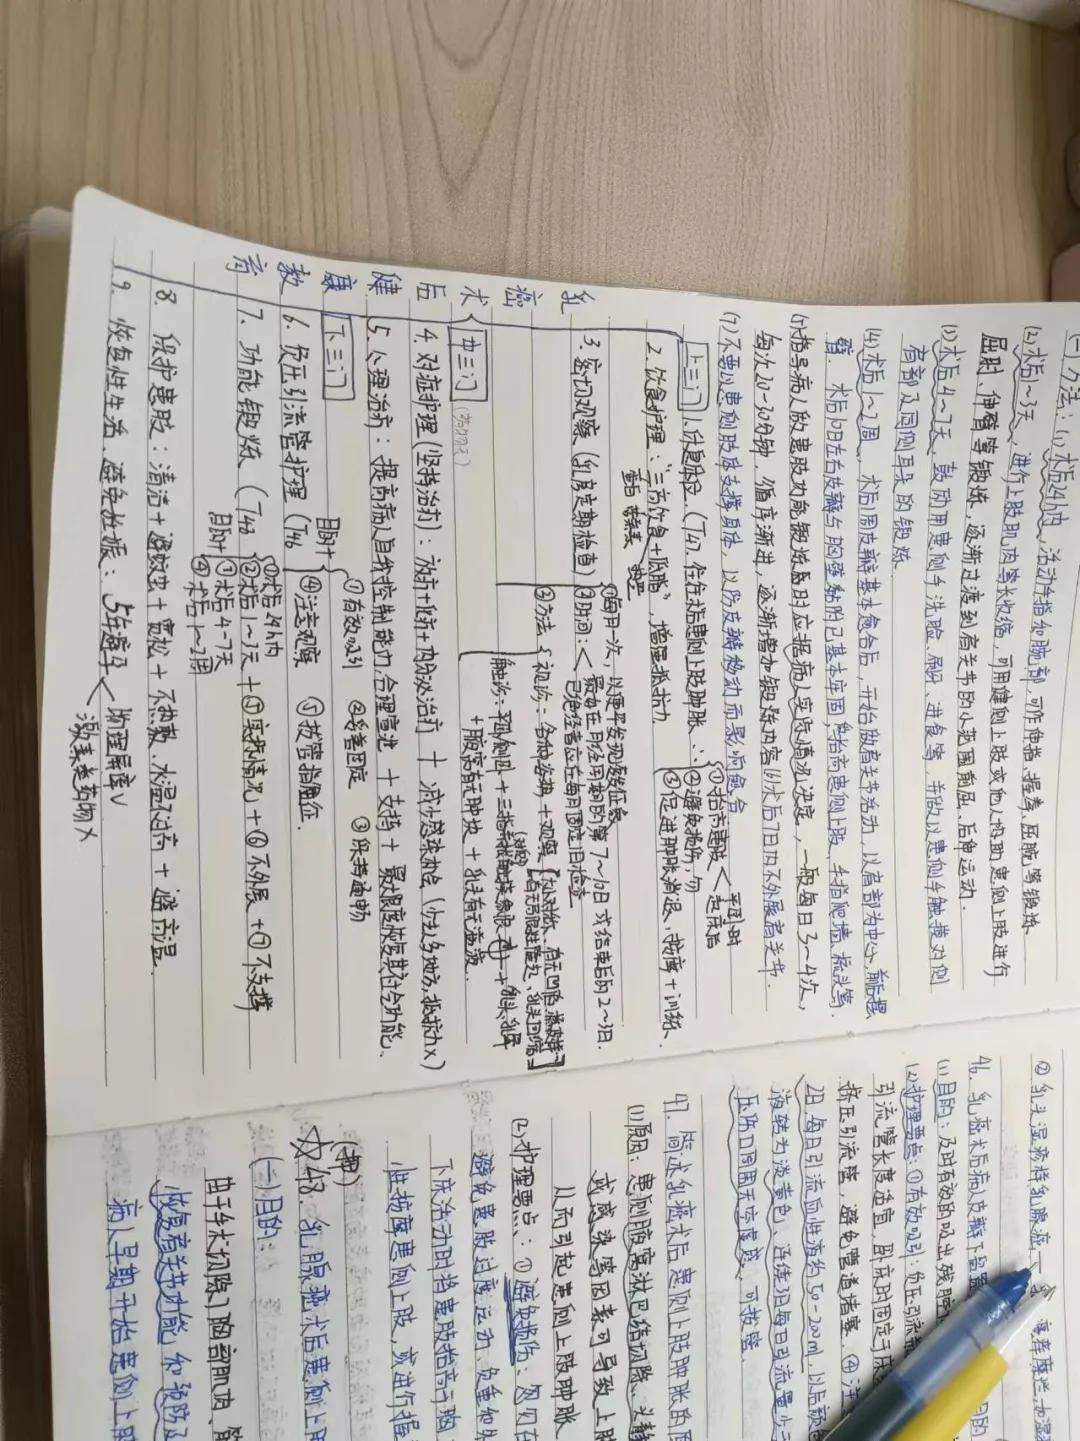 (二)方法：(1)术后24h内，活动手指和腕部，可作伸指、握拳、屈腕等锻炼
(2)术后1~3天，进行上肢肌肉等长收缩，可用健侧上肢或他人协助患侧上肢进行
屈肘、伸臂等锻炼，逐渐过渡到肩关节的小范围前屈、后伸运动.
(3)术后4~7天，鼓励用患侧手洗脸、刷牙、进食等，并做以患侧手触摸对侧
肩部及同侧耳朵的锻炼
(4)术后1~2周，术后1周皮瓣基本愈合后，开始做肩关节活动，以肩部为中心，前后摆
臂. 术后10日左右皮瓣与胸壁黏附已基本牢固，抬高患侧上肢、手指爬墙、梳头等.
(5)指导病人做患肢功能锻炼时应根据病人实际情况决定，一般每日3~4次，
每次20-30分钟，循序渐进，逐渐增加锻炼内容 (6)术后7日内不外展肩关节.
(7)不要以患侧肢体支撑身体，以防皮瓣移动而影响愈合
乳癌术后健康教育
上三门
1.休息体位（T47. 住住 患侧上肢肿胀 ∵
①抬高患肢 < 平卧时 起床后
②避免损伤，勿
③促进肿胀消退，按摩+训练.
2.饮食护理："三高饮食+低脂"，增强抵抗力
蛋白 维生素 热量
3.密切观察（乳房定期检查）
①每月一次，以便早发现复发征象
②时间：< 最好在月经周期的第7~10日或结束后的2~3日.
已绝经者应在每月固定1日检查
③方法
视诊：各种姿势+观察
触诊：平卧/侧卧+三指
+腋窝有无肿块+乳头有无溢液.
中三门
4.对症护理（坚持治疗）：放疗+化疗+内分泌治疗+减少感染机会（少去人多地方，抵抗力×）
5.心理治疗：提高病人自我控制能力合理宣泄+支持+最大限度恢复其社会功能.
下三门
6.负压引流管护理（T46
目的+
①有效吸引 ②妥善固定 ③保持通畅
④注意观察 ⑤拔管指征.
7.功能锻炼（T48
目的+
①术后24h内
②术后1~3天
③术后4-7天
④术后1~2周
+⑤实际情况+⑥不外展+⑦不支撑
8. 保护患肢：清洁+避蚊虫+宽松+不热敷、水温过高+避高温.
9. 恢复性生活、避免妊娠：5年避孕 < 物理屏障√
激素类药物×
②乳头湿疹样乳腺癌
46. 乳癌术后病人皮瓣下
(1)目的：及时有效的吸出残腔
(2)护理要点：①有效吸引：负压引流
引流管长度适宜，卧床时固定于床
挤压引流管，避免管道堵塞. ④注
2日，每日引流血性液约50-200ml，以后颜
液转为淡黄色，连续3日每日引流量少于
压伤口周围无空虚感，可拔管.
47. 简述乳癌术后患侧上肢肿胀的原
(1)原因：患侧腋窝淋巴结切除、头静
或感染等因素可导致上肢
从而引起患侧上肢肿胀
(2)护理要点：①避免损伤：勿在
避免患肢过度运动、负重和
下床活动时将患肢抬高于胸
性按摩患侧上肢，或进行握
☆48. 乳腺癌术后患侧上
(押)
(一)目的：
由于手术切除了胸部肌肉、
恢复肩关节功能和预防及
病人早期开始患侧上肢